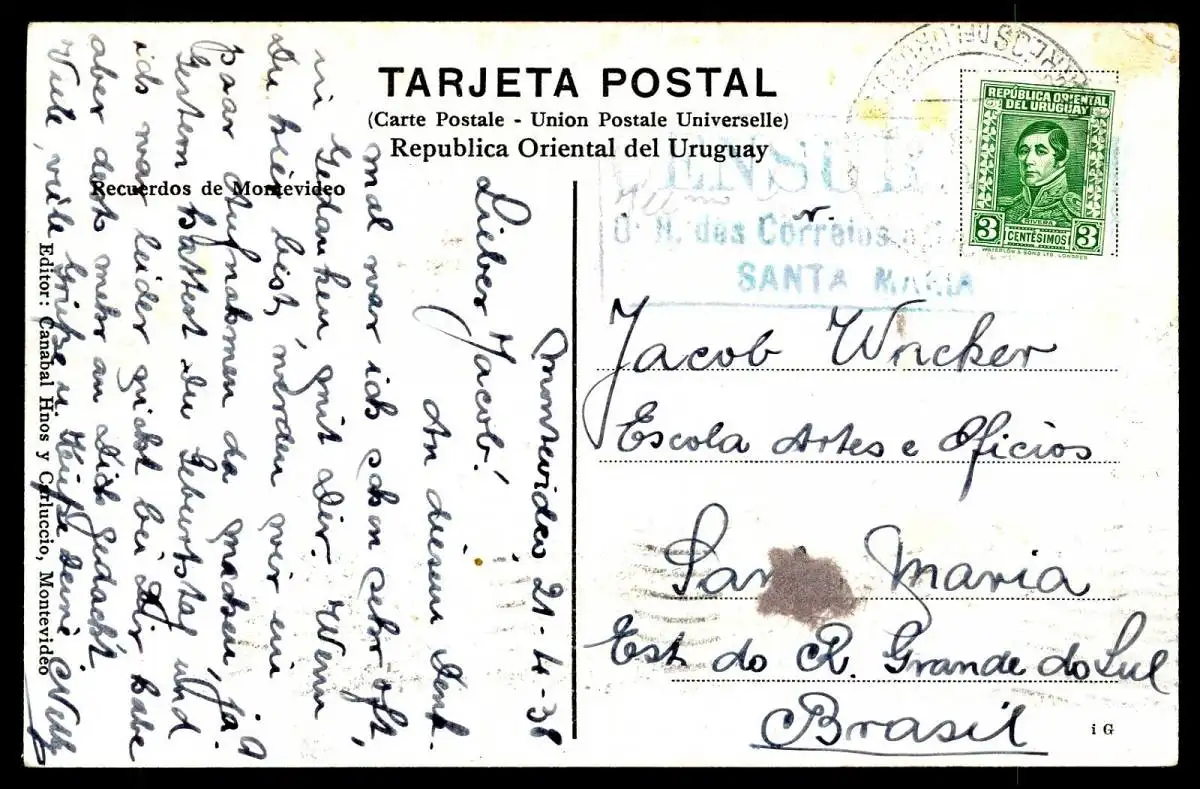 TARJETA POSTAL
(Carte Postale - Union Postale Universelle)
Republica Oriental del Uruguay
Recuerdos de Montevideo
Editor: Canabal Hnos y Carluccio, Montevideo
Montevideo 21-4-38
Lieber Jacob!
An diesem Denk-
mal war ich schon sehr oft,
in Gedanken mit Dir. Wenn
Du hier bist, werden wir ein
paar Aufnahmen da machen, ja?
Gestern hattest Du Geburtstag und
ich war leider nicht bei Dir habe
aber desto mehr an Dich gedacht.
Viele, viele Grüße u. Küße Deine Nelly
CENSURA
D. R. dos Correios e
SANTA MARIA
REPÚBLICA ORIENTAL
DEL URUGUAY
RIVERA
3 CENTÉSIMOS 3
WATERLOW & SONS LTD. LONDRES
Jacob Wncker
Escola Artes e Oficios
Santa Maria
Est. do R. Grande do Sul
Brasil
i G